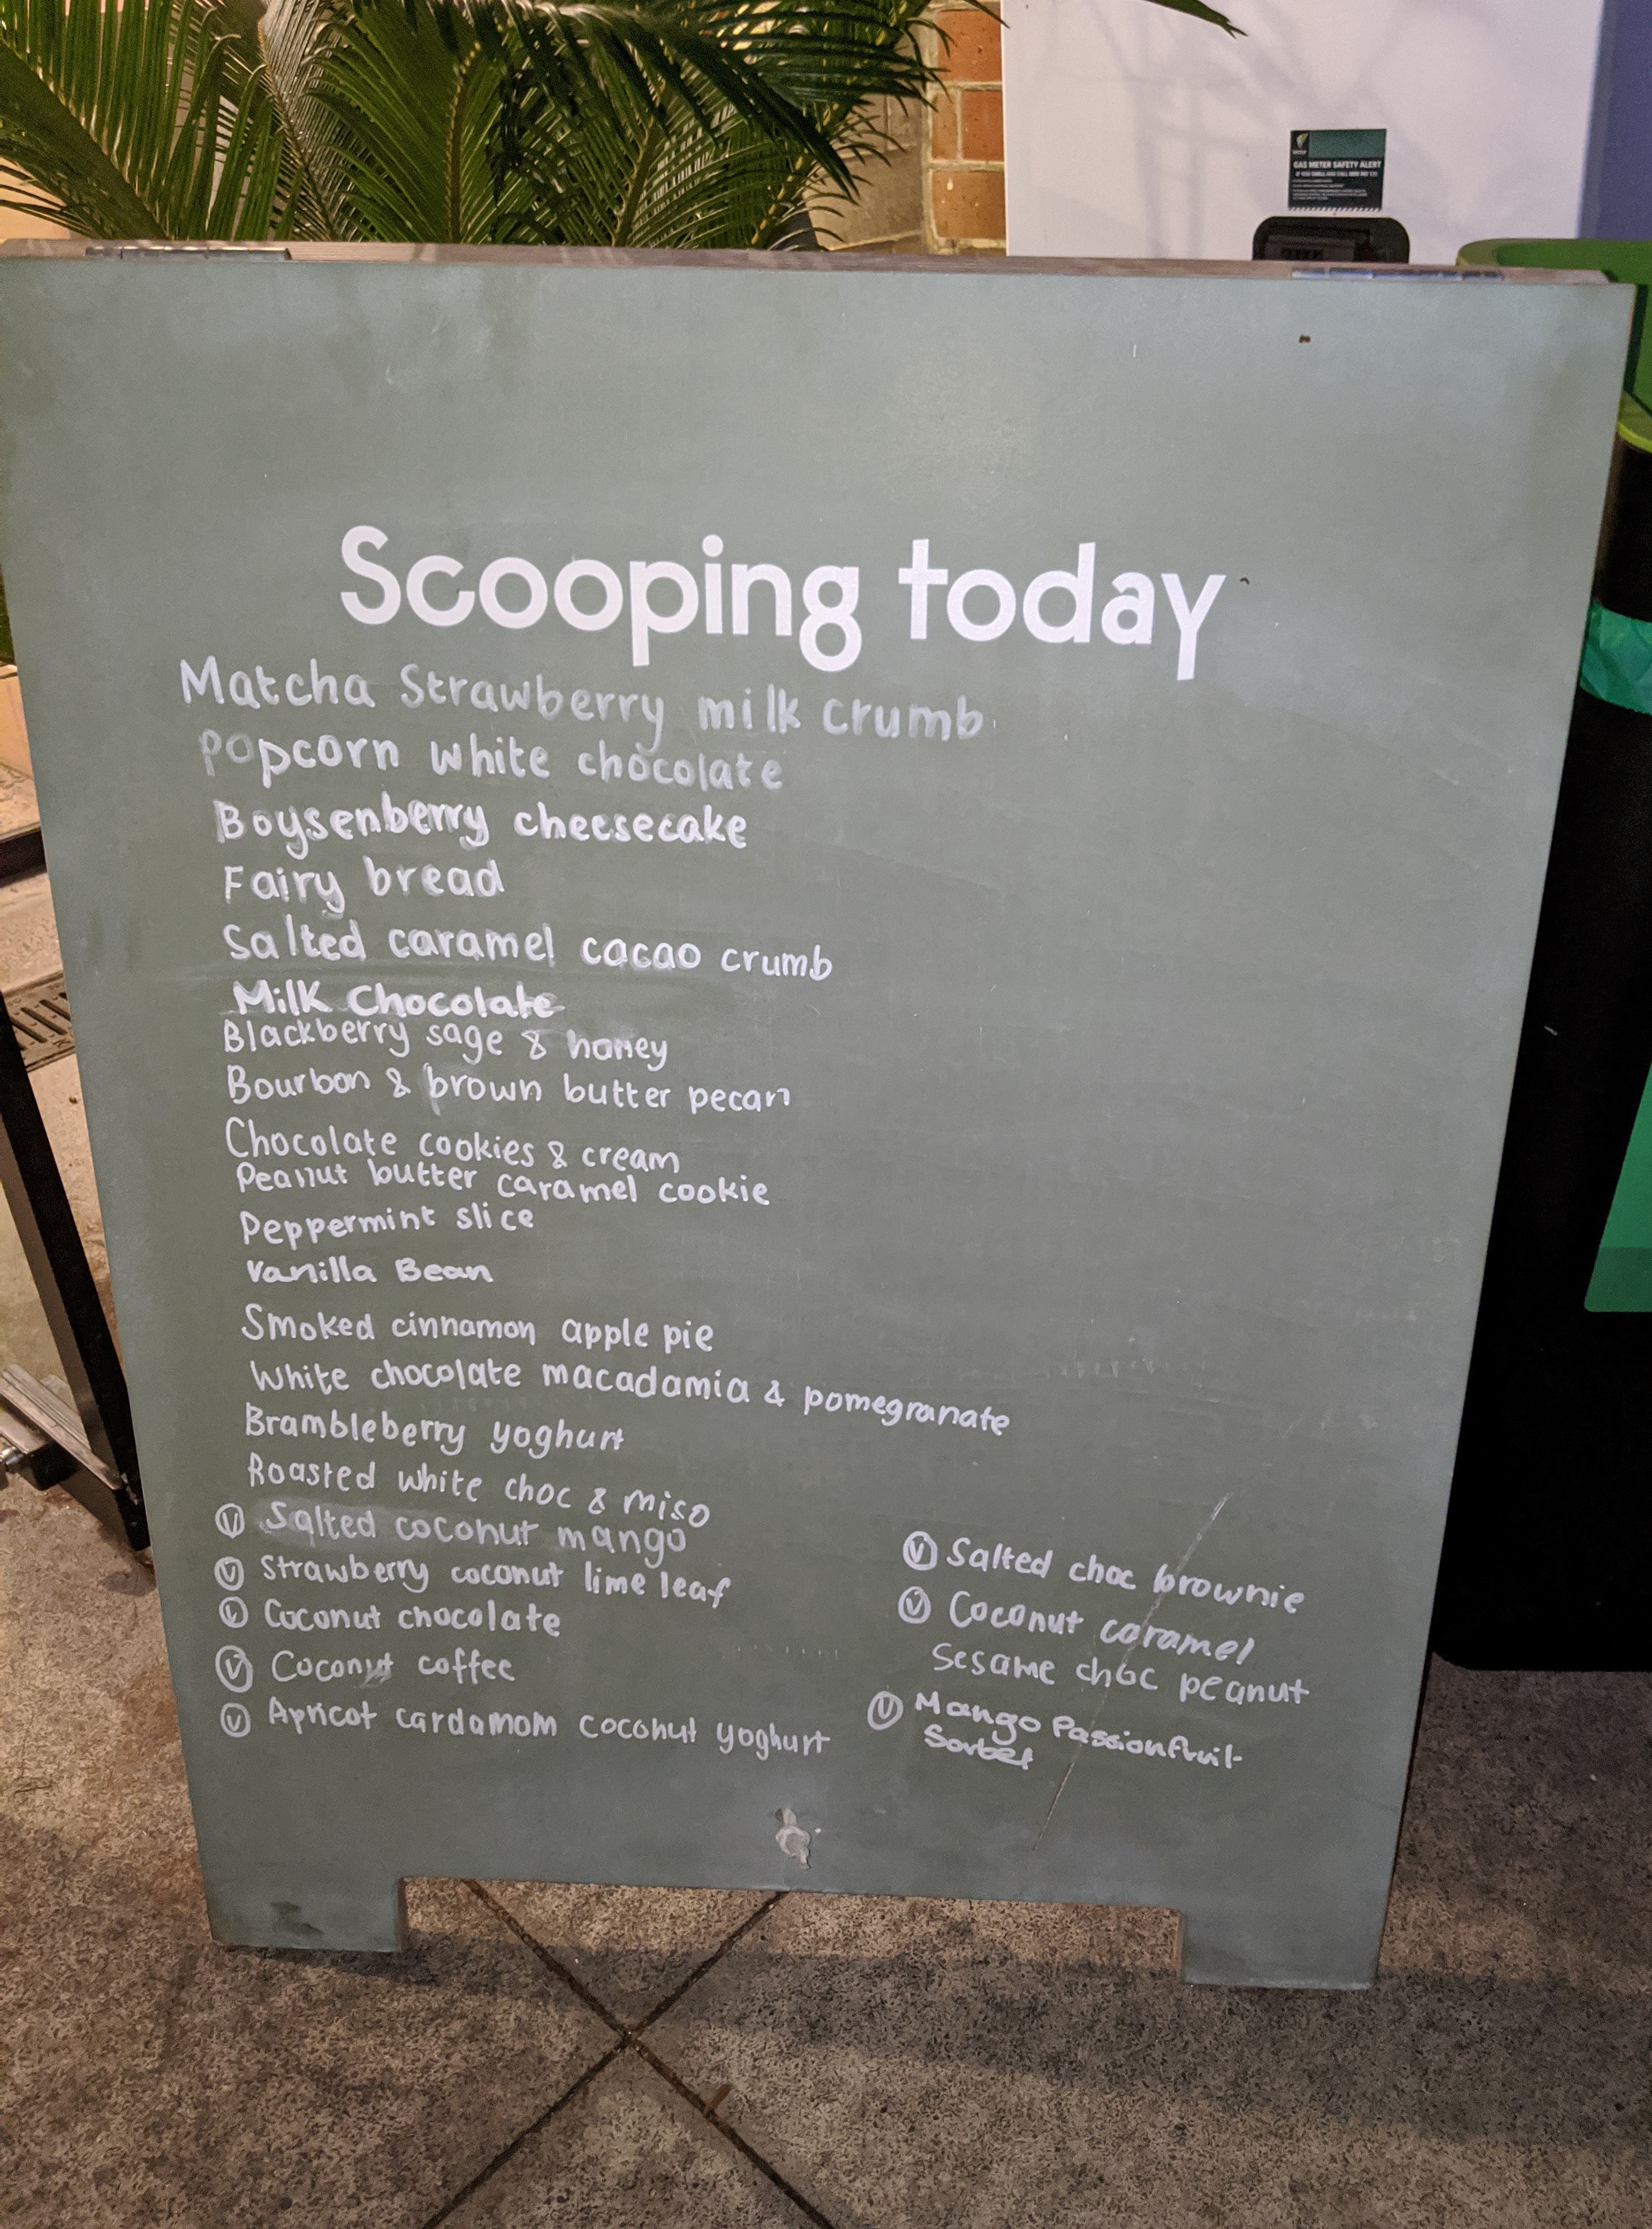 GAS METER SAFETY ALERT
Scooping today
Matcha Strawberry milk crumb
Popcorn white chocolate
Boysenberry cheesecake
Fairy bread
Salted caramel cacao crumb
Milk Chocolate
Blackberry sage & honey
Bourbon & brown butter pecan
Chocolate cookies & cream
Peanut butter caramel cookie
Peppermint slice
Vanilla Bean
Smoked cinnamon apple pie
White chocolate macadamia & pomegranate
Brambleberry yoghurt
Roasted white choc & miso
V Salted coconut mango
V Strawberry coconut lime leaf
V Coconut chocolate
V Coconut coffee
V Apricot cardamom coconut yoghurt
V Salted choc brownie
V Coconut caramel
Sesame choc peanut
V Mango Passionfruit
Sorbet